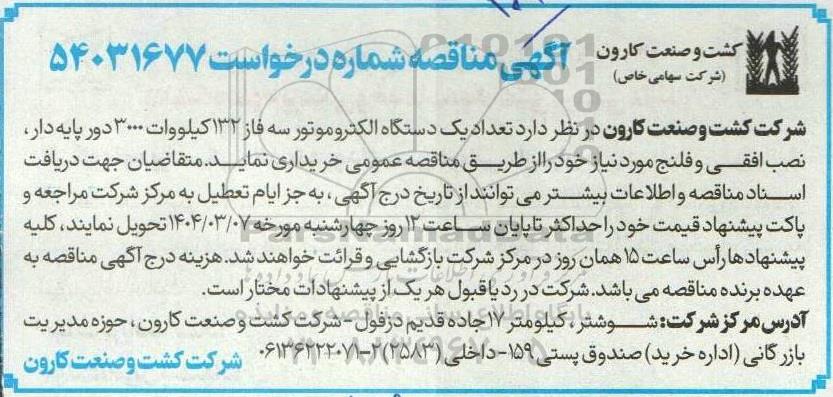 کشت و صنعت کارون
(شرکت سهامی خاص)
آگهی مناقصه شماره درخواست ۵۴۰۳۱۶۷۷
شرکت کشت و صنعت کارون در نظر دارد تعداد یک دستگاه الکتروموتور سه فاز ۱۳۲ کیلووات ۳۰۰۰ دور پایه دار،
نصب افقی و فلنج مورد نیاز خود را از طریق مناقصه عمومی خریداری نماید. متقاضیان جهت دریافت
اسناد مناقصه و اطلاعات بیشتر می توانند از تاریخ درج آگهی، به جز ایام تعطیل به مرکز شرکت مراجعه و
پاکت پیشنهاد قیمت خود را حداکثر تا پایان ساعت ۱۲ روز چهارشنبه مورخه ۱۴۰۴/۰۳/۰۷ تحویل نمایند، کلیه
پیشنهادها رأس ساعت ۱۵ همان روز در مرکز شرکت بازگشایی و قرائت خواهند شد. هزینه درج آگهی مناقصه به
عهده برنده مناقصه می باشد. شرکت در رد یا قبول هر یک از پیشنهادات مختار است.
آدرس مرکز شرکت: شوشتر، کیلومتر ۱۷ جاده قدیم دزفول - شرکت کشت و صنعت کارون، حوزه مدیریت
بازرگانی (اداره خرید) صندوق پستی ۱۵۹ - داخلی (۲۵۸۳) ۲-۰۶۱۳۶۲۲۲۰۷۱
شرکت کشت و صنعت کارون
ParsNamadData